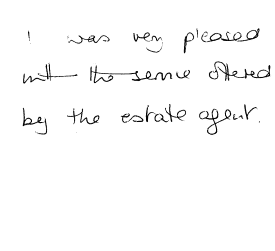 I was very pleased
with the service offered
by the estate agent.